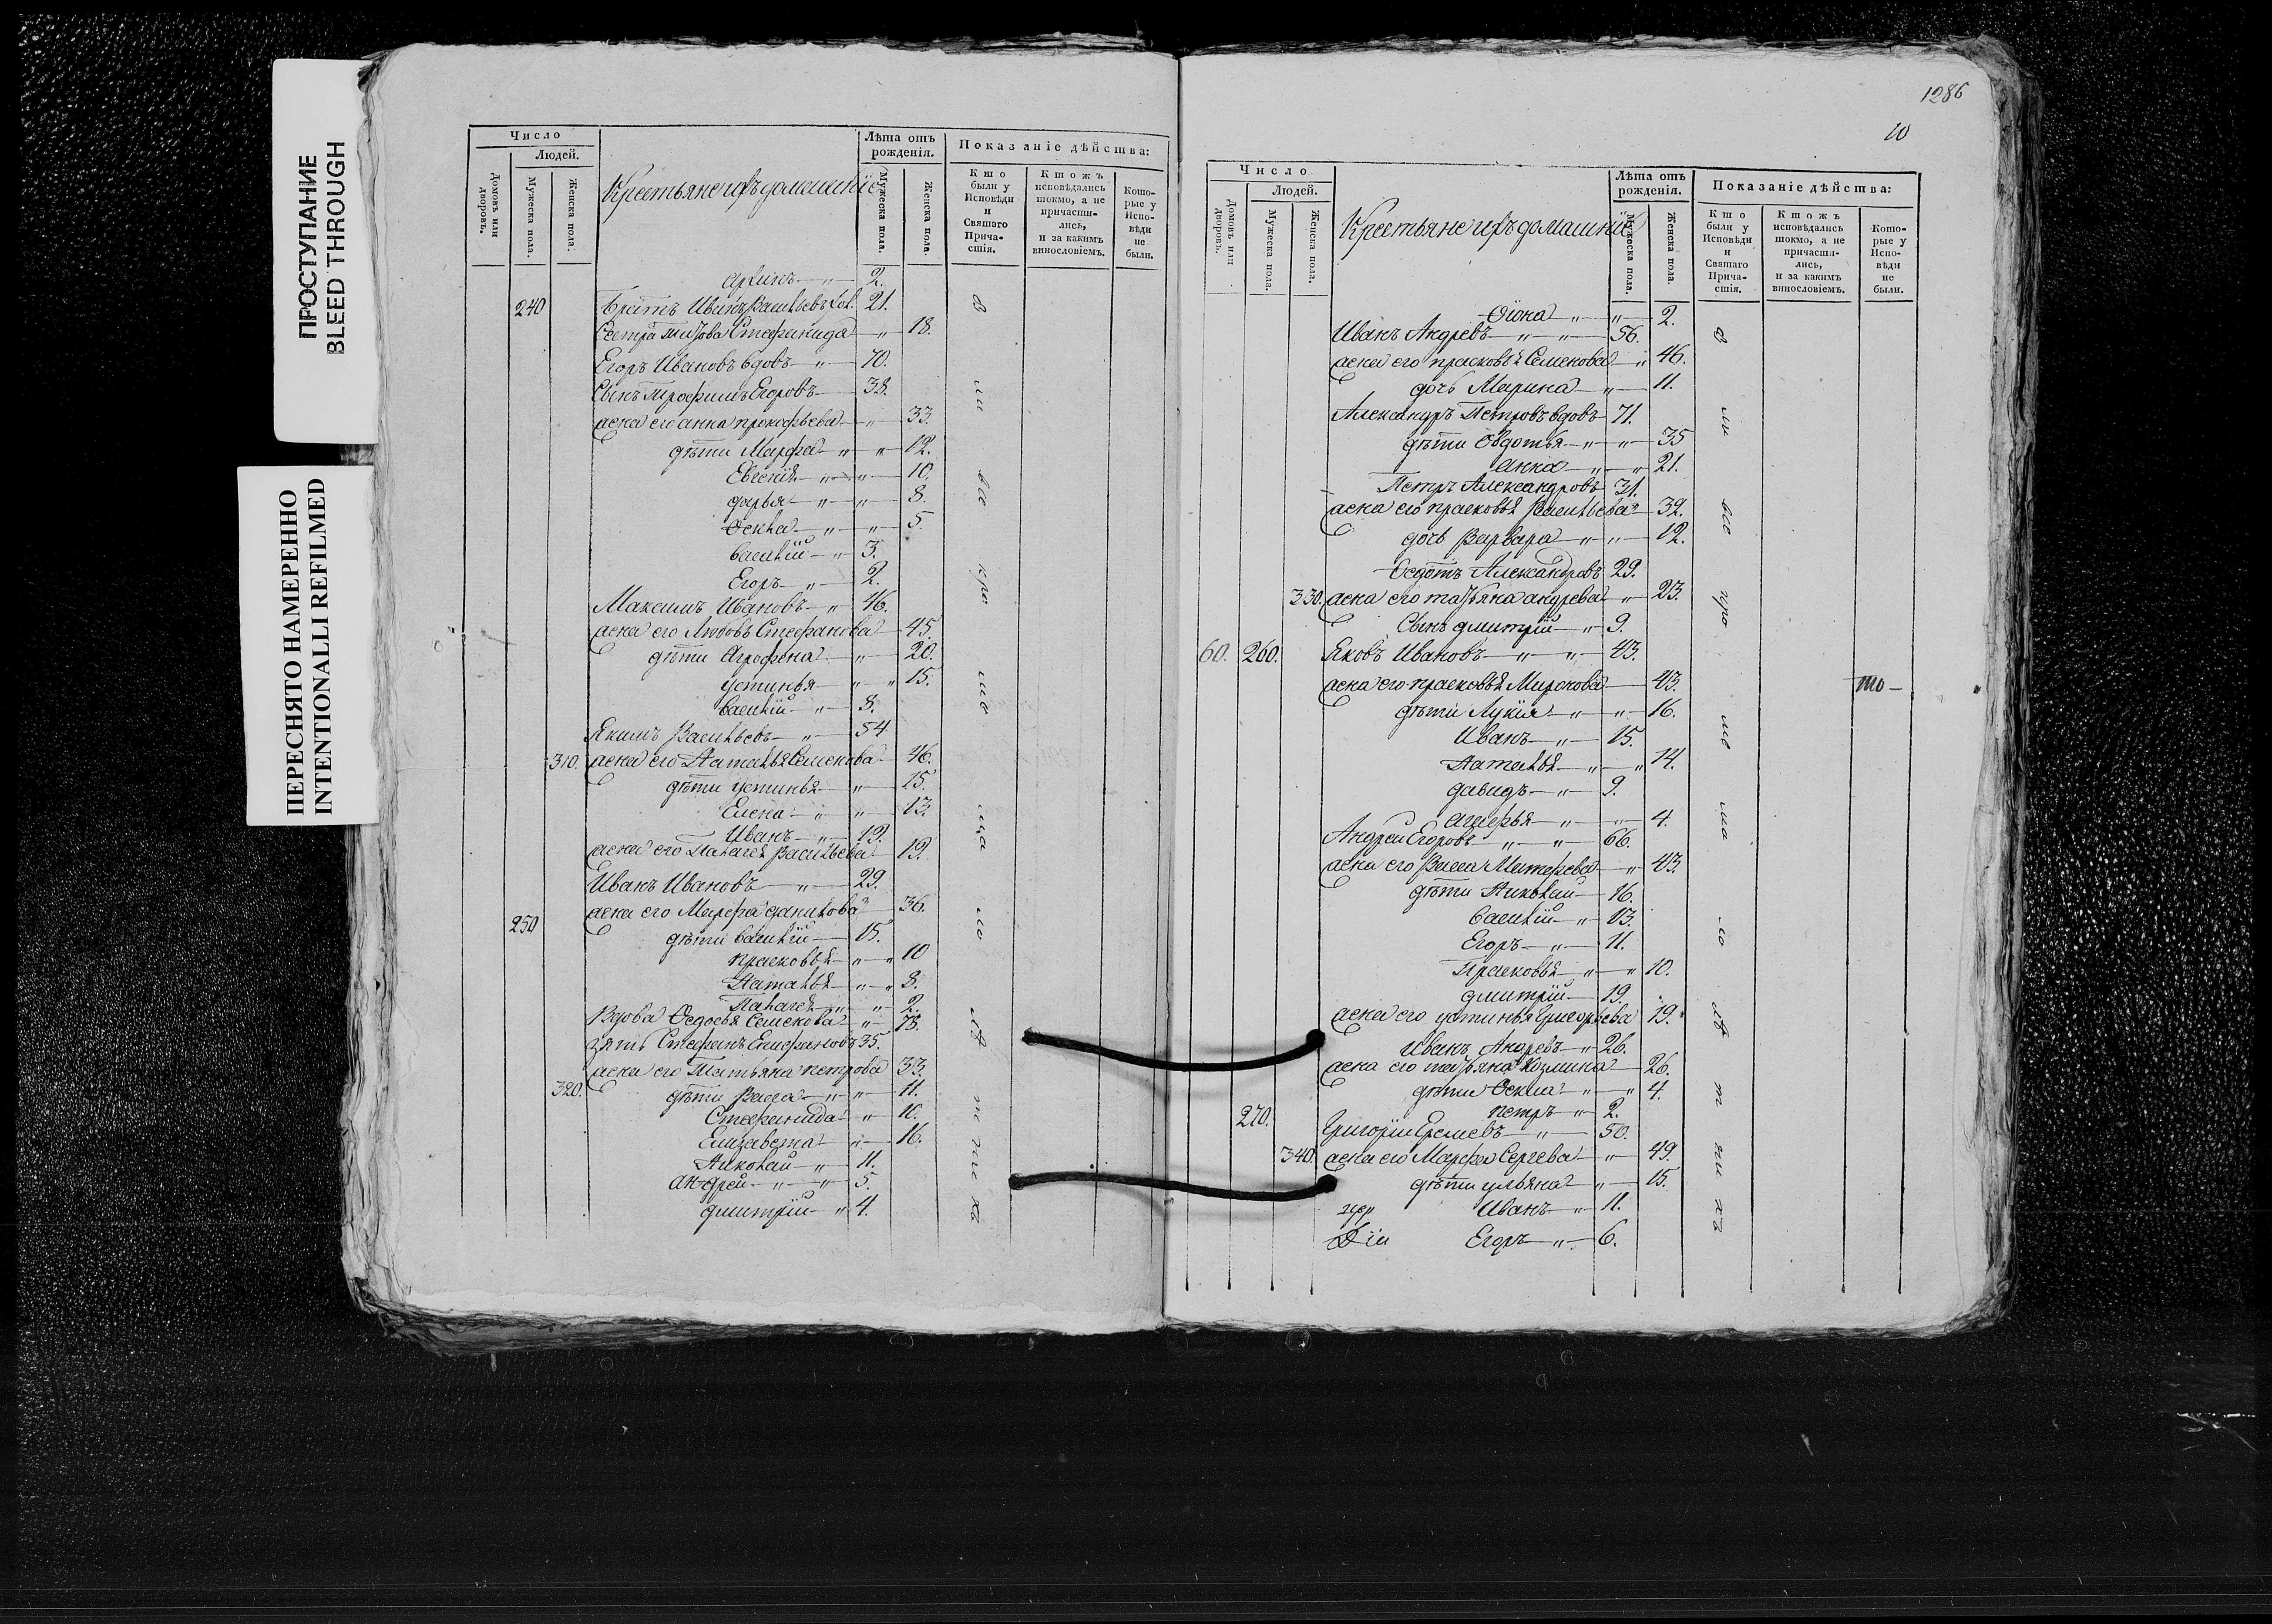 ПРОСТУПАНИЕ
BLEED THROUGH
ПЕРЕСНЯТО НАМЕРЕННО
INTENTIONALLI REFILMED
Число
Людей.
Домовъ или дворовъ.
Мужеска пола.
Женска пола.
Крестьяне ихъ домашнїе
Лѣта отъ рожденїя.
Мужеска пола.
Женска пола.
Показанїе дѣйства:
Кто были у Исповѣди и Святаго Причастїя.
Ктожъ исповѣдались токмо, а не причастились, и за какимъ винословїемъ.
Которые у Исповѣди не были.
2.
240 Братъ Иванъ Васильевъ 21.
Сестра Стефанида 18.
Егоръ Ивановъ вдовъ 70.
Сынъ Трофимъ Егоровъ 38.
жена его анна прокофьева 33.
дѣти Марфа 12.
Евгенїя 10.
дарья 8.
5.
василїй 3.
Егоръ 2.
Максимъ Ивановъ 46.
жена его Любовь Стефанова 45.
дѣти Агрофена 20.
устинья 15.
василїй 8.
Якимъ Васильевъ 54
310. жена его Наталья Семенова 46.
дѣти устинья 15.
Елена 13.
Иванъ 19.
жена его Палагея Васильева 19.
Иванъ Ивановъ 29.
жена его Марфа данилова 36.
250 дѣти василїй 15.
прасковья 10
Наталья 8.
Палагея 2.
Вдова Ѳедосья Семенова 73.
зять Стефанъ 35.
жена его Татьяна петрова 33.
320. дѣти Васса 11.
Стефанида 10.
Елизавета 16.
Николай 11.
андрей 5.
дмитрїй 4.
1286
10
Число
Людей.
Домовъ или дворовъ.
Мужеска пола.
Женска пола.
Крестьяне ихъ домашнїе
Лѣта отъ рожденїя.
Мужеска пола.
Женска пола.
Показанїе дѣйства:
Кто были у Исповѣди и Святаго Причастїя.
Ктожъ исповѣдались токмо, а не причастились, и за какимъ винословїемъ.
Которые у Исповѣди не были.
2.
Иванъ Андревъ 56.
жена его прасковья Семенова 46.
дочь Марина 11.
Александръ Петровъ вдовъ 71.
дѣти Овдотья 35
Анна 21.
Петръ Александровъ 31.
жена его прасковья Васильева 32.
дочь Варвара 12.
Ѳедотъ Александровъ 29.
330. жена его татьяна андрева 23.
Сынъ дмитрїй 9.
60. 260. Яковъ Ивановъ 43.
жена его прасковья Миронова 43. то
дѣти Лукїя 16.
Иванъ 15.
Наталья 14.
давидъ 9.
4.
Андрей Егоровъ 66.
жена его Васса Матфева 43.
дѣти Николай 16.
василїй 13.
Егоръ 11.
Прасковья 10.
дмитрїй 19.
жена его устинья Григорьева 19.
Иванъ Андревъ 26.
жена его татьяна Козмина 26.
дѣти 4.
270. петръ 2.
Григорїй Еремевъ 50.
340. жена его Марфа Сергева 49
дѣти ульяна 15.
Иванъ 11.
Дїи Егоръ 6.